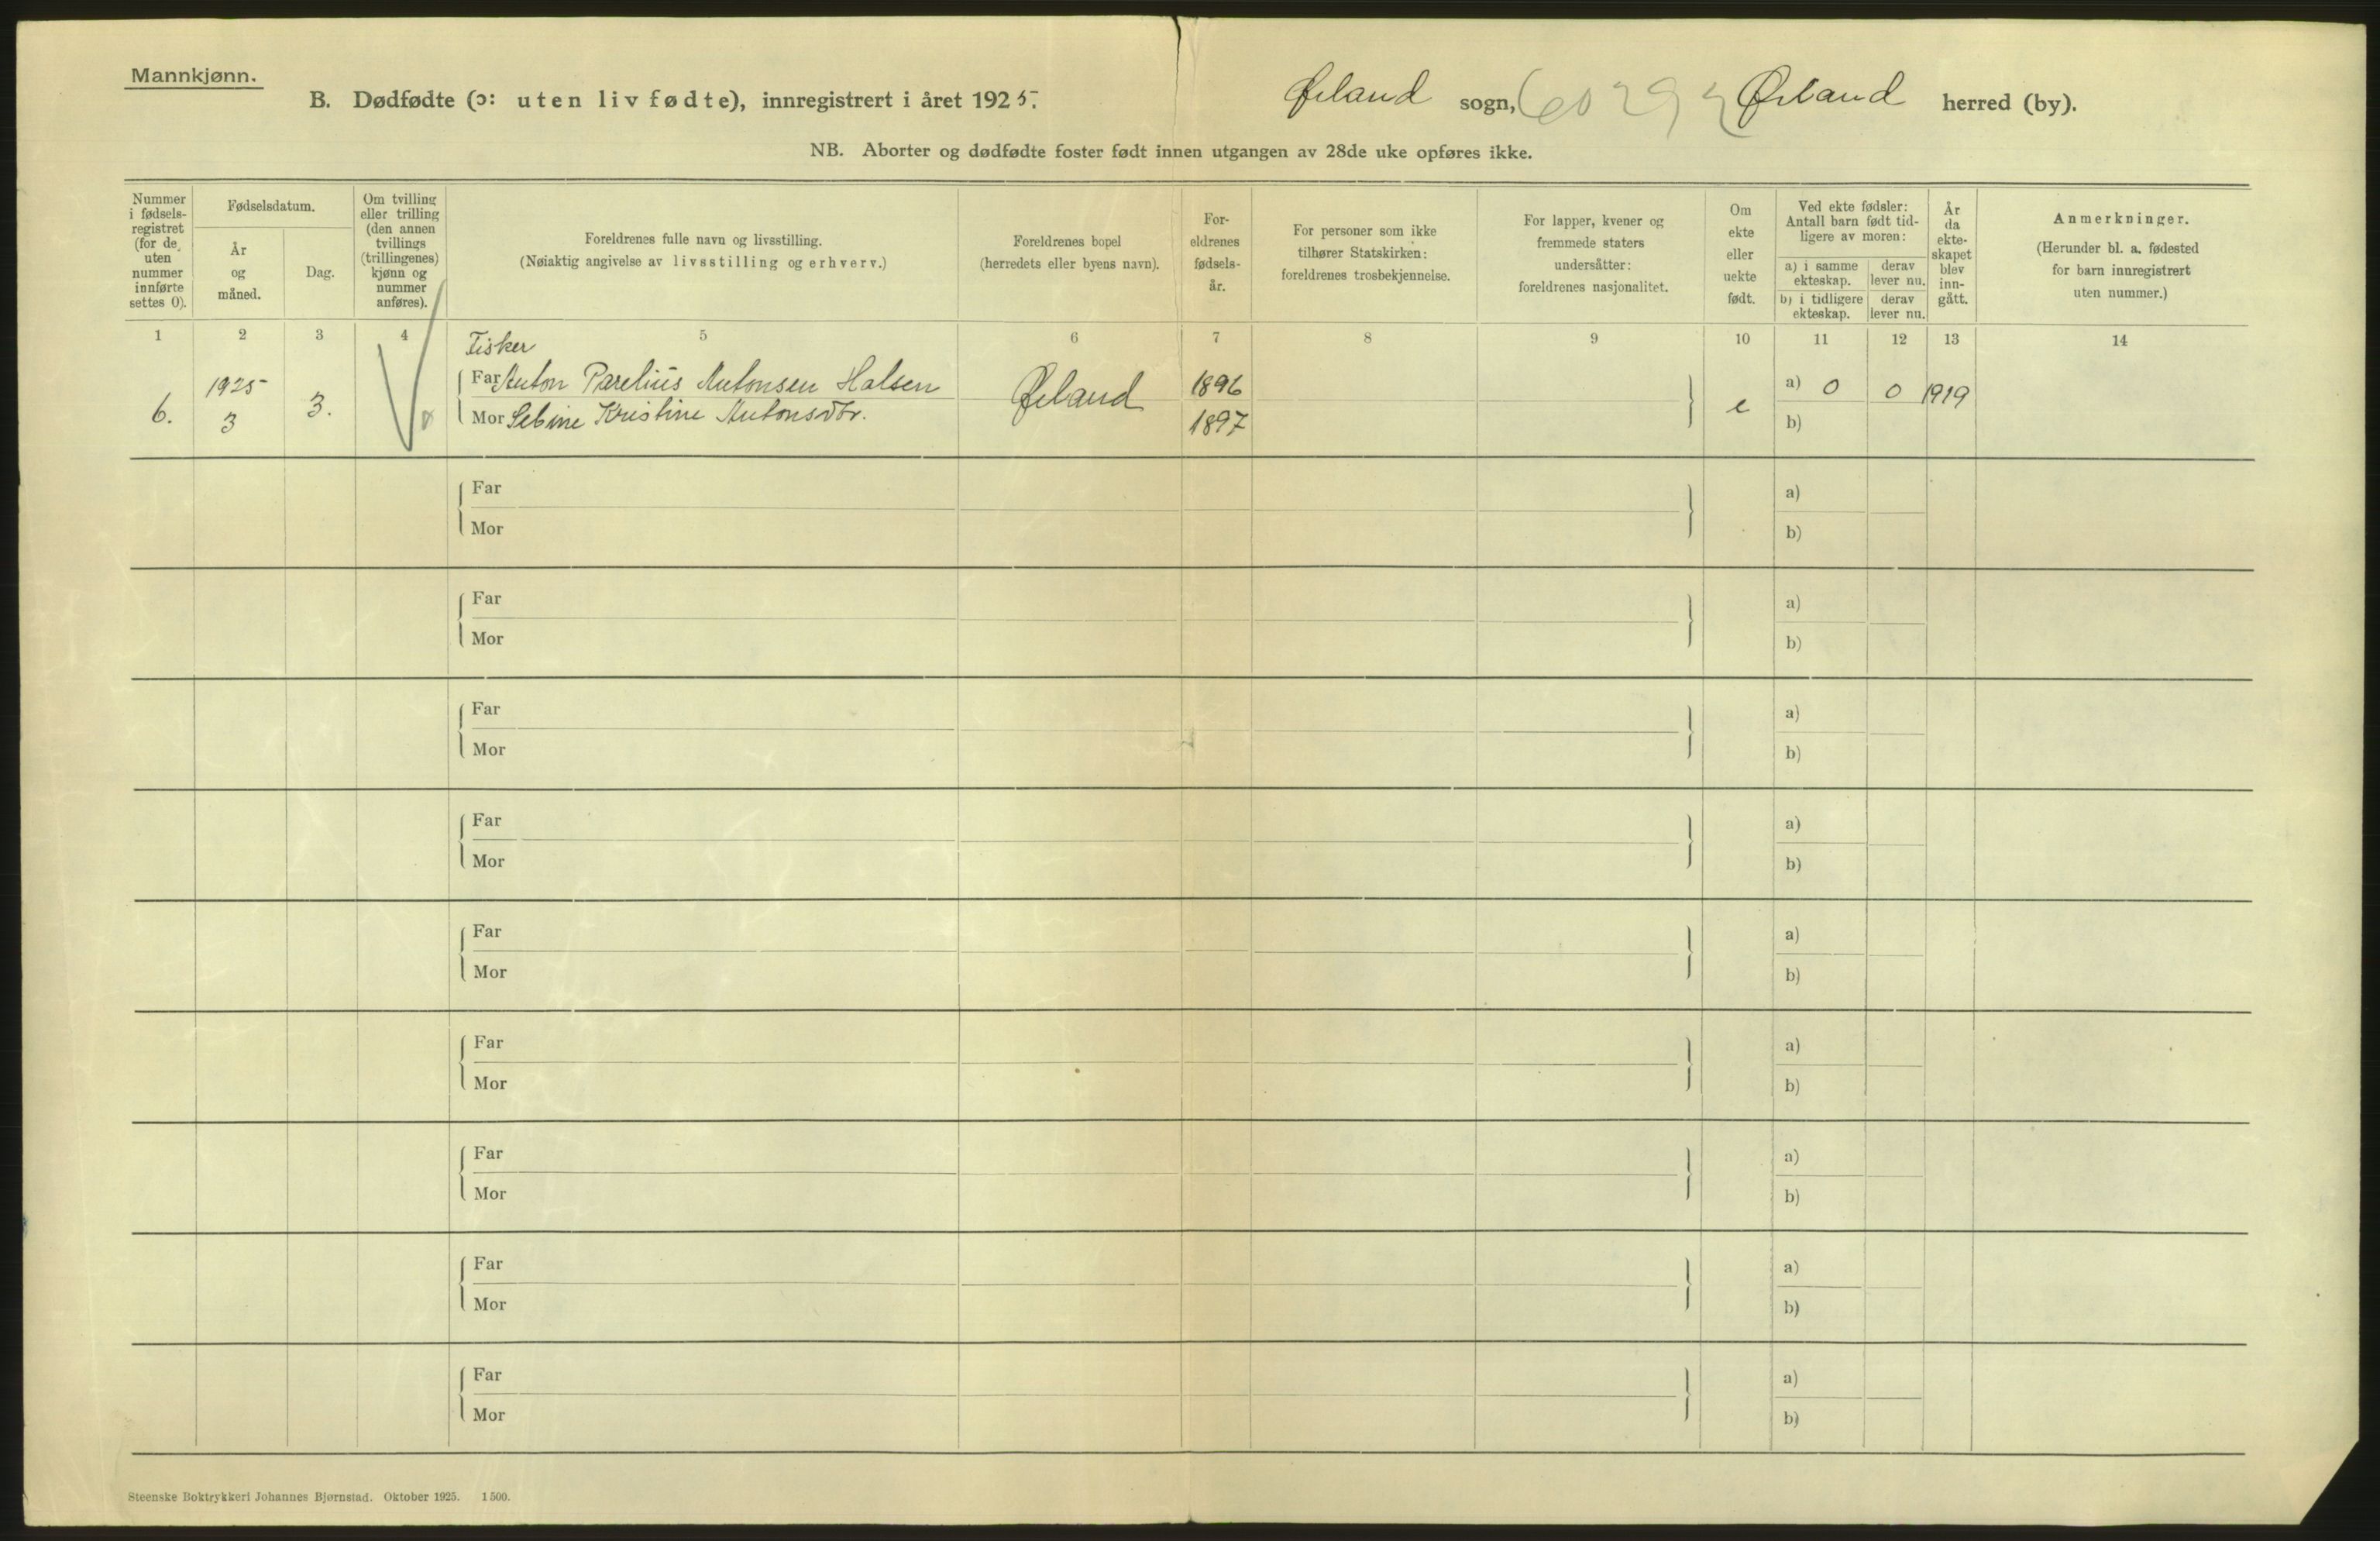 Mannkjønn.
B. Dødfødte (ɔ: uten liv fødte), innregistrert i året 1925.
Ørland sogn, Ørland herred (by).
NB. Aborter og dødfødte foster født innen utgangen av 28de uke opføres ikke.
Nummer
i fødsels-
registret
(for de
uten
nummer
innførte
settes 0).
Fødselsdatum.
År
og
måned.
Dag.
Om tvilling
eller trilling
(den annen
tvillings
(trillingenes)
kjønn og
nummer
anføres).
Foreldrenes fulle navn og livsstilling.
(Nøiaktig angivelse av livsstilling og erhverv.)
Foreldrenes bopel
(herredets eller byens navn).
For-
eldrenes
fødsels-
år.
For personer som ikke
tilhører Statskirken:
foreldrenes trosbekjennelse.
For lapper, kvener og
fremmede staters
undersåtter:
foreldrenes nasjonalitet.
Om
ekte
eller
uekte
født.
Ved ekte fødsler:
Antall barn født tid-
ligere av moren:
a) i samme
ekteskap.
derav
lever nu.
b) i tidligere
ekteskap.
derav
lever nu.
År
da
ekte-
skapet
blev
inn-
gått.
Anmerkninger.
(Herunder bl. a. fødested
for barn innregistrert
uten nummer.)
1 2 3 4 5 6 7 8 9 10 11 12 13 14
Fisker
6. 1925 3 3.
Far Anton Parelius Antonsen Halsen
Mor Sebine Kristine Antonsdtr.
Ørland
1896
1897
e
a) 0 0 1919
b)
Far a)
Mor b)
Far a)
Mor b)
Far a)
Mor b)
Far a)
Mor b)
Far a)
Mor b)
Far a)
Mor b)
Far a)
Mor b)
Far a)
Mor b)
Far a)
Mor b)
Steenske Boktrykkeri Johannes Bjørnstad. Oktober 1925. 1500.